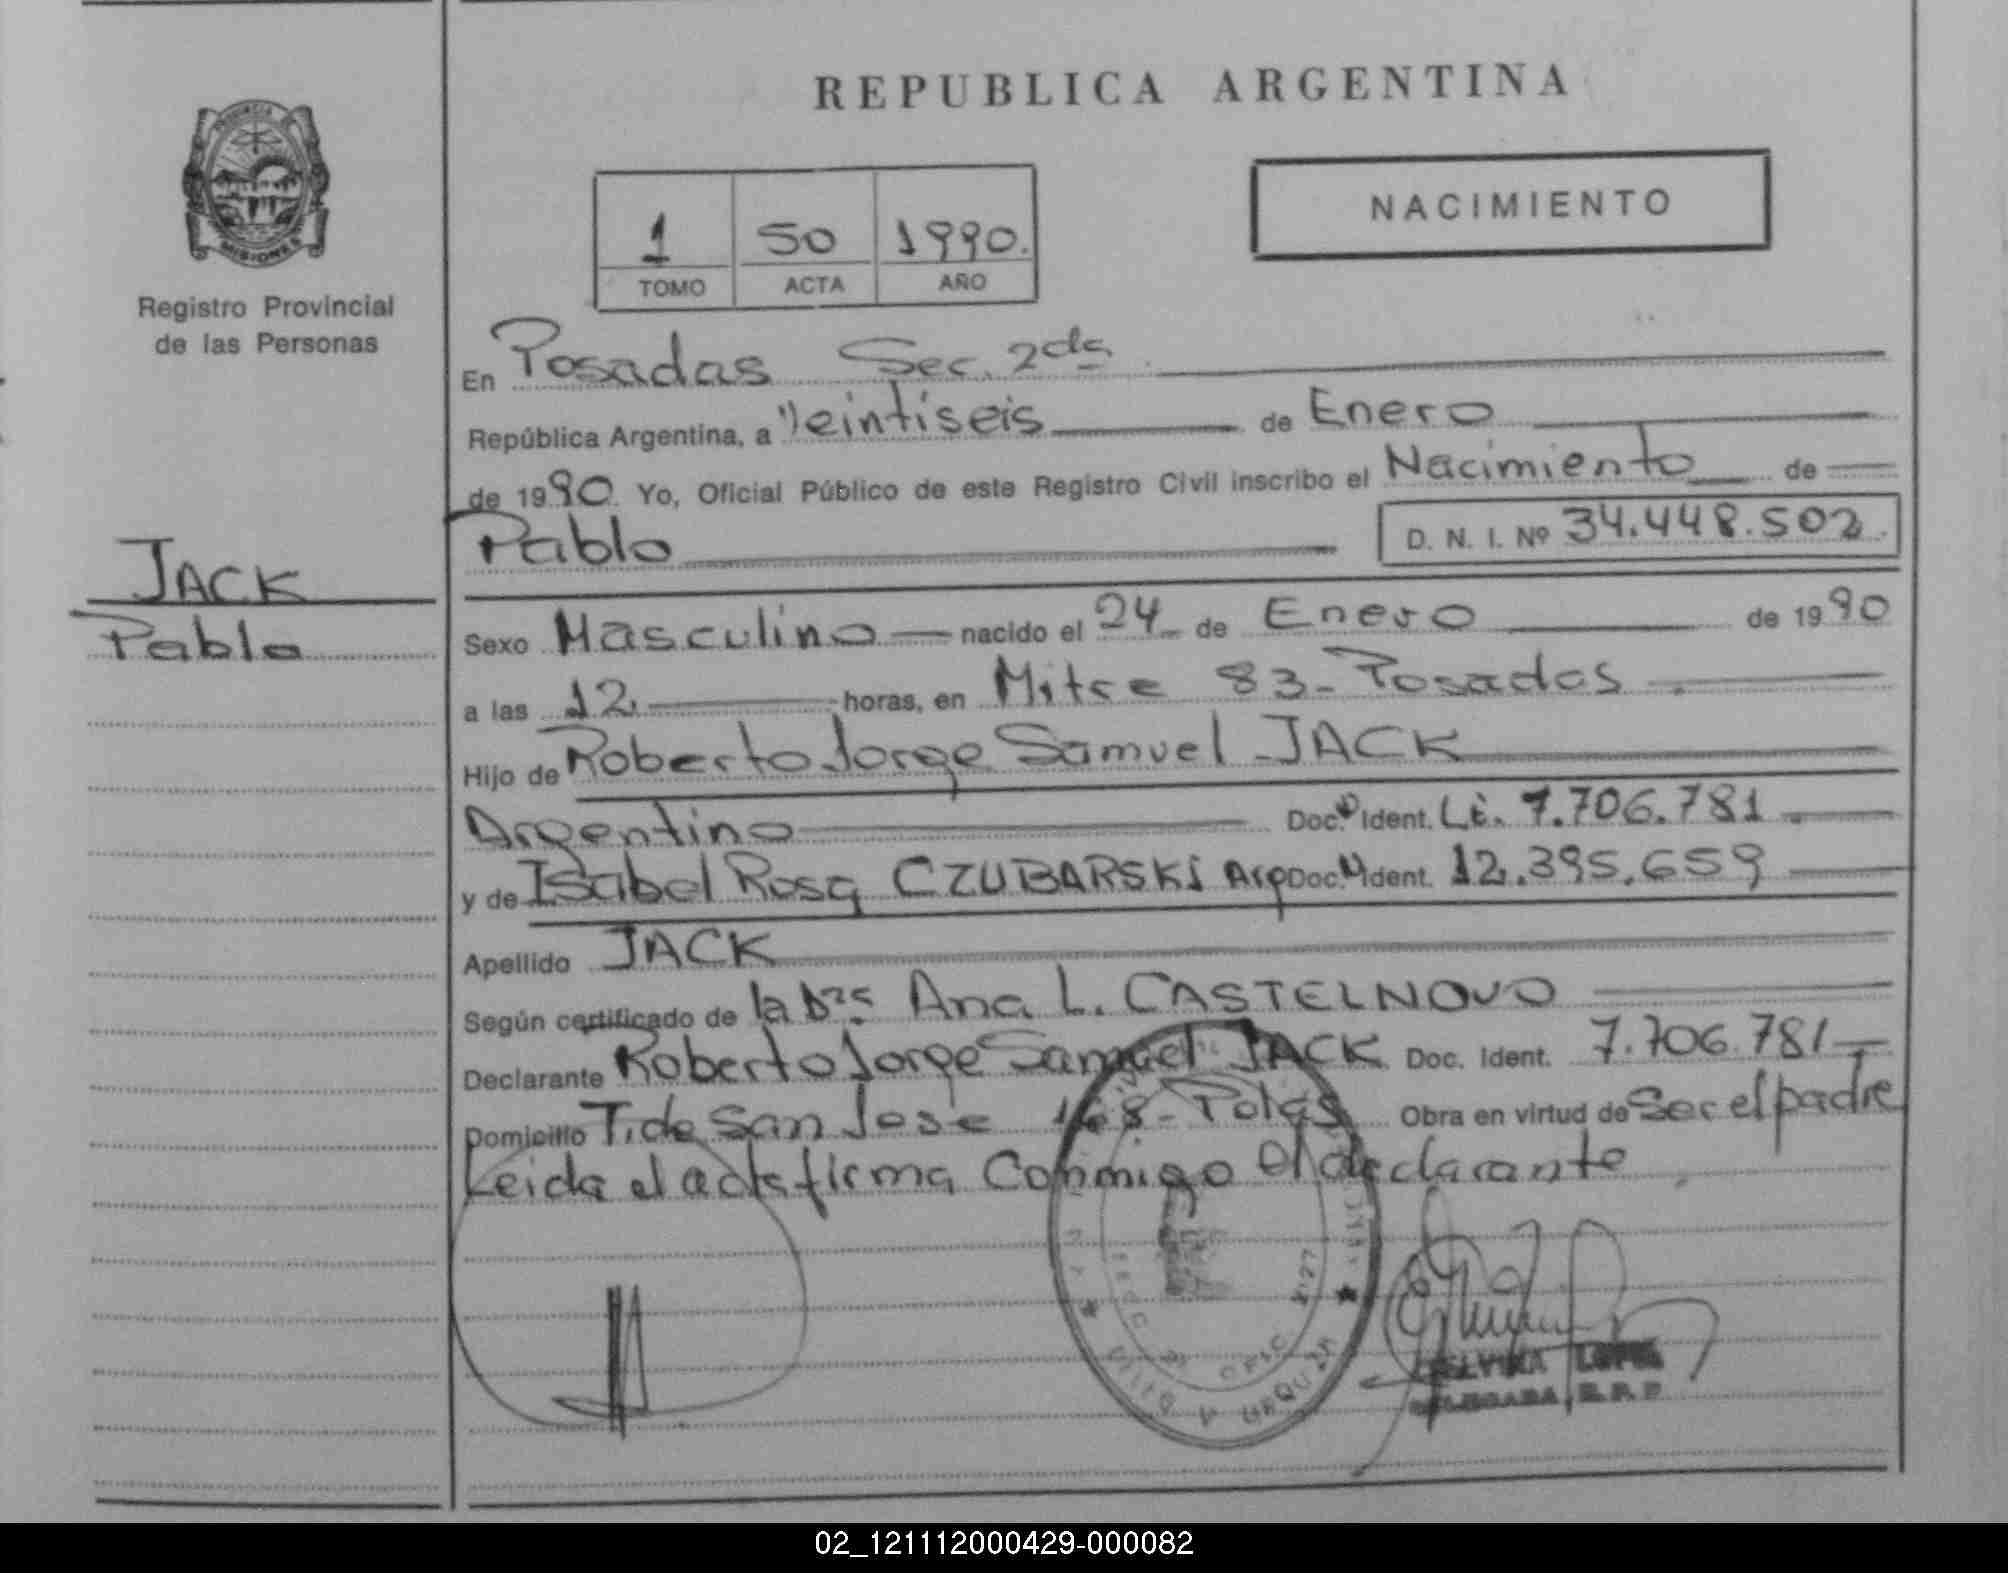 REPUBLICA ARGENTINA
PROVINCIA
MISIONES
Registro Provincial
de las Personas
1 50 1990.
TOMO ACTA AÑO
NACIMIENTO
En Posadas Sec. 2da
República Argentina, a Veintiseis de Enero
de 1990. Yo, Oficial Público de este Registro Civil inscribo el Nacimiento de
Pablo D. N. I. Nº 34.448.502.
JACK
Pablo
Sexo Masculino nacido el 24 de Enero de 1990
a las 12 horas, en Mitre 83- Posadas
Hijo de Roberto Jorge Samuel JACK
Argentino Doc. Ident. L.E. 7.706.781
y de Isabel Rosa CZUBARSKI Arg Doc. Ident. 12.395.659
Apellido JACK
Según certificado de la Dra. Ana L. CASTELNOVO
Declarante Roberto Jorge Samuel JACK Doc. Ident. 7.706.781
Domicilio T. de San José 168- Pdas Obra en virtud de Ser el padre
Leida el acta firma Conmigo el declarante
DELEGADA R.P.P
02_121112000429-000082